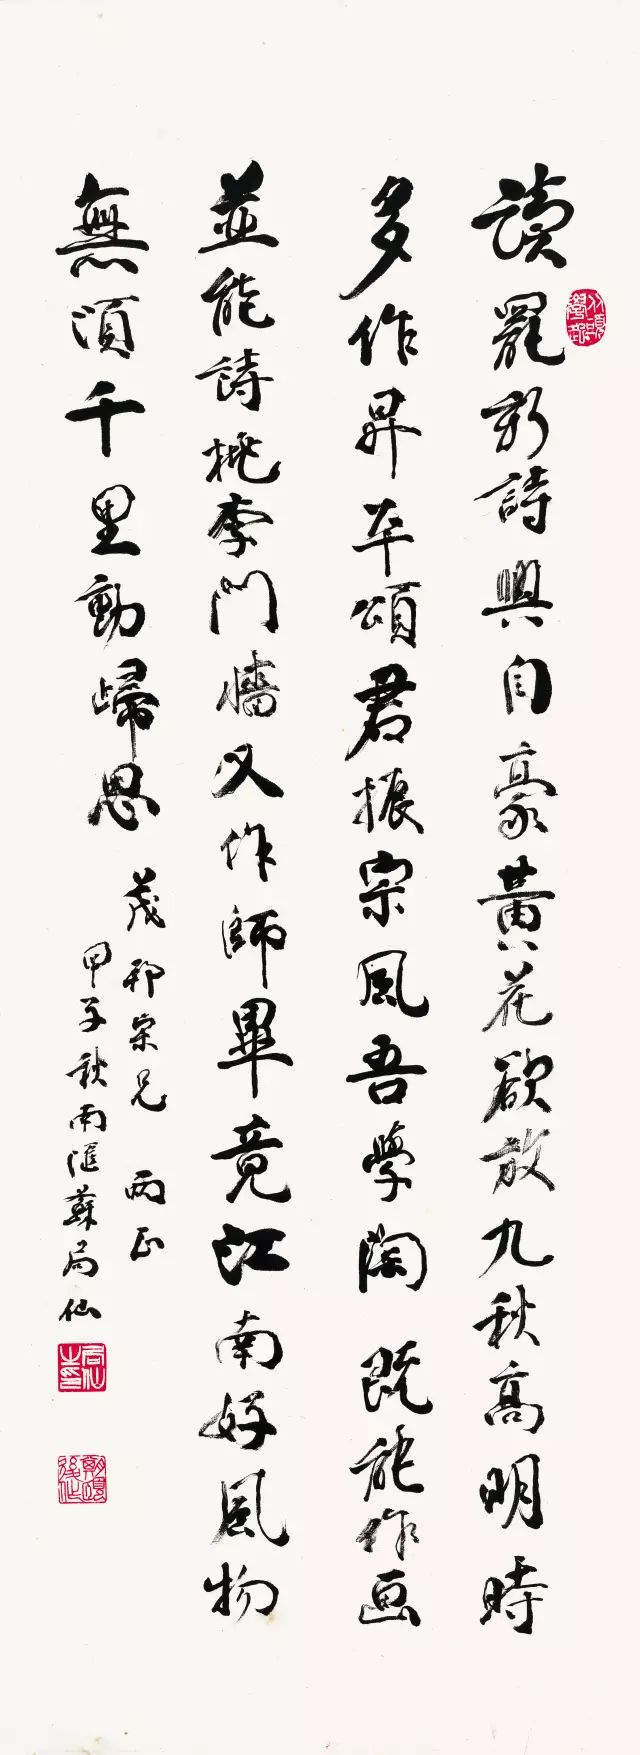 讀罷新詩興自豪黃花欲放九秋高明時
多作昇平頌君振宗風吾學陶既能作画
並能詩桃李門墻又作師畢竟江南好風物
無須千里動歸思
茂邦宗兄兩正
甲子秋南滙蘇局仙
局仙之印